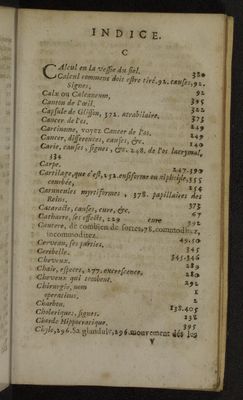 INDICE.
C
CAlcul en la vessie du fiel. 320
Calcul comment doit estre tiré. 92. causes, 92.
Signes, 92
Calx ou Calcaneum, 395
Canton de l'œil. 322
Capsule de Glisson, 372. atrabilaire. 373
Cancer de l'os. 249
Carcinome, voyez Cancer de l'os. 249
Cancer, differences, causes, &c. 140
Carie, causes, signes, &c. 248. de l'os lacrymal,
334
Carpe. 247.390
Cartilage, que c'est, 252. ensiforme ou xiphoide. 355
courbée, 254
Caruncules myrtiformes, 378. papillaires des
Reins. 373
Cataracte, causes, cure, &c. 67
Catharre, ses effects, 229 cure 392
Cautere, de combien de sortes, 78. commoditez,
incommoditez. 49.50
Cerveau, ses parties. 345
Cerebelle. 345.346
Cheveux. 289
Chair, especes, 277. excrescence, 280
Cheveux qui tombent. 292
Chirurgie, nom 1
operations. 2
Charbon. 138.405
Cholerique, signes. 138
Chorde Hippocratique. 395
Chyle, 296. Sa glandule, 296. mouvement dés les
V